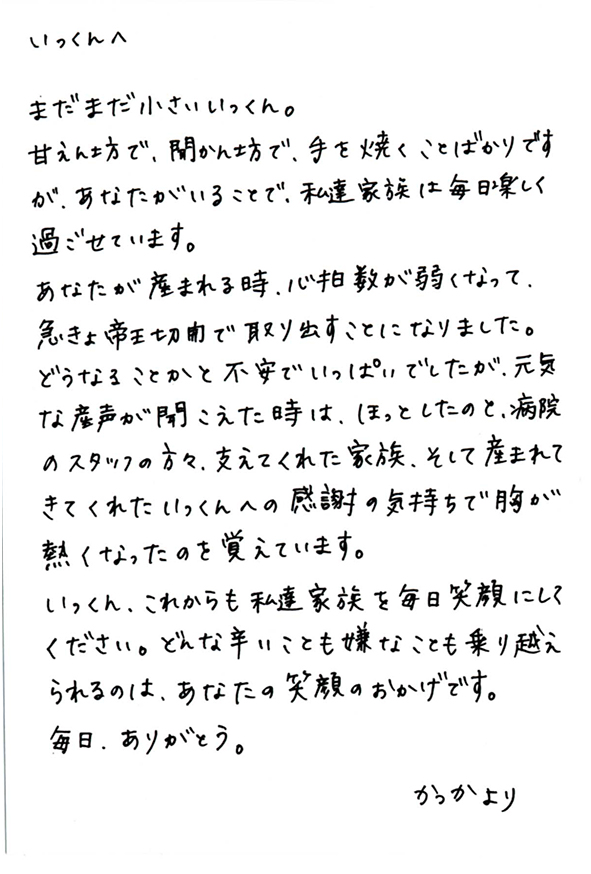 いっくんへ
まだまだ小さいいっくん。
甘えん坊で、聞かん坊で、手を焼くことばかりです
が、あなたがいることで、私達家族は毎日楽しく
過ごせています。
あなたが産まれる時、心拍数が弱くなって、
急きょ帝王切開で取り出すことになりました。
どうなることかと不安でいっぱいでしたが、元気
な産声が聞こえた時は、ほっとしたのと、病院
のスタッフの方々、支えてくれた家族、そして産まれて
きてくれたいっくんへの感謝の気持ちで胸が
熱くなったのを覚えています。
いっくん、これからも私達家族を毎日笑顔にして
ください。どんな辛いことも嫌なことも乗り越え
られるのは、あなたの笑顔のおかげです。
毎日、ありがとう。
かっかより